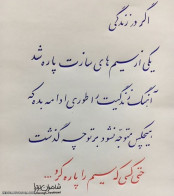 اگر در زندگی
یکی از سیم های سازت پاره شد
آهنگ زندگیت را طوری ادامه بده که
هیچکس متوجه نشود بر تو چه گذشت
حتی کسی که سیم را پاره کرد...